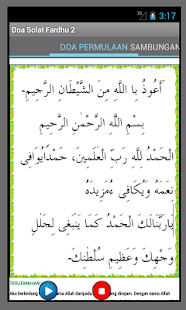 3:17
Doa Solat Fardhu 2
DOA PERMULAAN SAMBUNGAN
أَعُوذُ بِا اللَّهِ مِنَ الشَّيْطَانِ الرَّجِيْمِ-
بِسْمِ اللَّهِ الرَّحْمٰنِ الرَّحِيْمِ
اَلْحَمْدُ لِلَّهِ رَبِّ الْعَلَمِيْنَ، حَمْدًايُوَافِى
نِعَمَهُ وَيُكَافِى مُزِيْدَهُ
يَارَبَّنَالَكَ الْحَمْدُ كَمَا يَنْبَغِى لِجَلَلِ
وَجْهِكَ وَعَظِيْمِ سُلْطٰنِكَ-
TERJEMAHAN:
Aku berlindung Allah daripada direjam. Dengan nama Allah